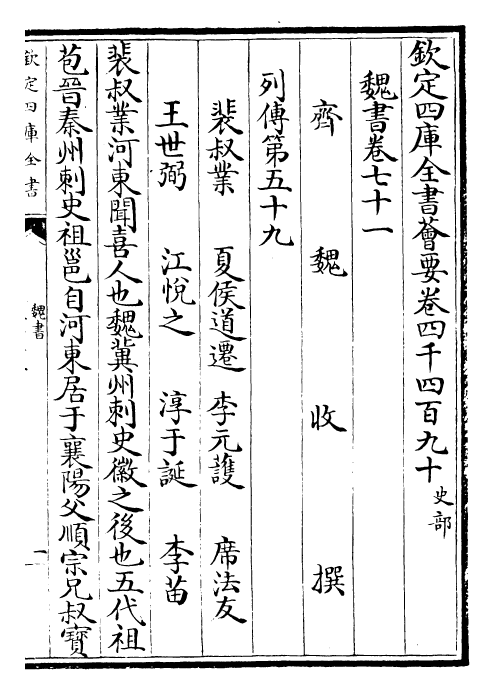 欽定四庫全書薈要卷四千四百九十 史部
魏書卷七十一
齊 魏 收 撰
列傳第五十九
裴叔業 夏侯道遷 李元護 席法友
王世弼 江悅之 淳于誕 李苗
裴叔業河東聞喜人也魏冀州刺史徽之後也五代祖
苞晉秦州刺史祖邕自河東居于襄陽父順宗兄叔寶
欽定四庫全書
魏書
一